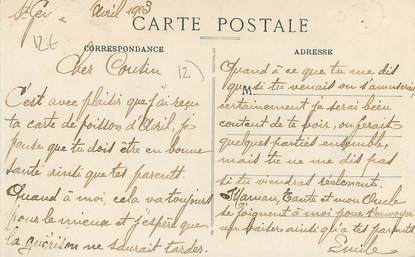 St Gev Avril 1913
CARTE POSTALE
12t
CORRESPONDANCE
ADRESSE
12
Cher Cousin
C'est avec plaisir que j'ai reçu
ta carte de poisson d'Avril, je
pense que tu dois être en bonne
santé ainsi que tes parents.
Quand à moi, cela va toujours
pour le mieux et j'espère que
la guérison ne saurait tarder.
Quand à ce que tu me dis
M
que si tu venais on s'amuserait
certainement ça serai bien
content de te voir, on ferait
quelques parties ensemble,
mais tu ne me dis pas
si tu viendras réelement.
Maman, Tante et mon Oncle
se joignent à moi pour t'envoyer
un baiser ainsi qu'à tes parents
Emile